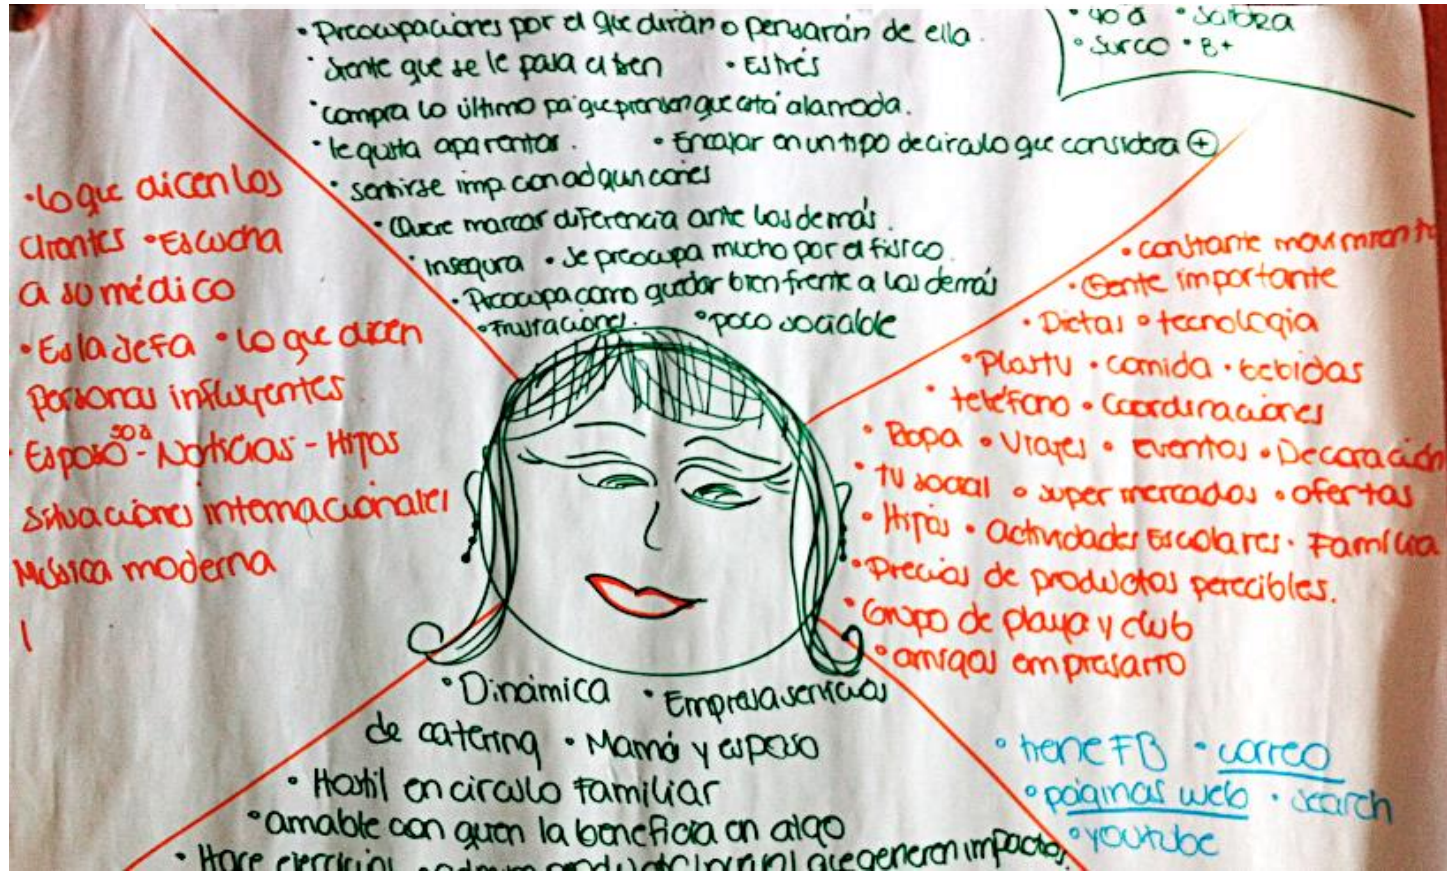 • Preocupaciones por el que dirán o pensarán de ella.
• siente que se le pasa el tren • Estrés
• compra lo último pa' que piensen que está a la moda.
• le gusta aparentar. • Encajar en un tipo de círculo que considera +
• sentirse imp. con adquisiciones
• Quiere marcar diferencia ante los demás.
• insegura • Se preocupa mucho por el físico.
• Preocupa como quedar bien frente a los demás
• Frustraciones. • poco sociable
• 40 a •
• Surco • B+
• Lo que dicen los
clientes • Escucha
a su médico
• Es la Jefa • Lo que dicen
personas influyentes
• Esposo 50 a - Noticias - Hijos
Situaciones internacionales
Música moderna
• constante movimiento
• Gente importante
• Dietas • tecnología
• Plastu • comida • bebidas
• teléfono • Coordinaciones
• Ropa • Viajes • eventos • Decoración
• tv social • super mercados • ofertas
• Hijos • actividades Escolares • Familia
• Precios de productos perecibles.
• Grupo de playa y club
• amigos empresario
• Dinámica • Empresa servicios
de catering • Mamá y esposo
• Hostil en círculo familiar
• amable con quien la beneficia en algo
• Hace ejercicios • productos que generen impacto.
• tiene FB • correo
• páginas web • search
• youtube